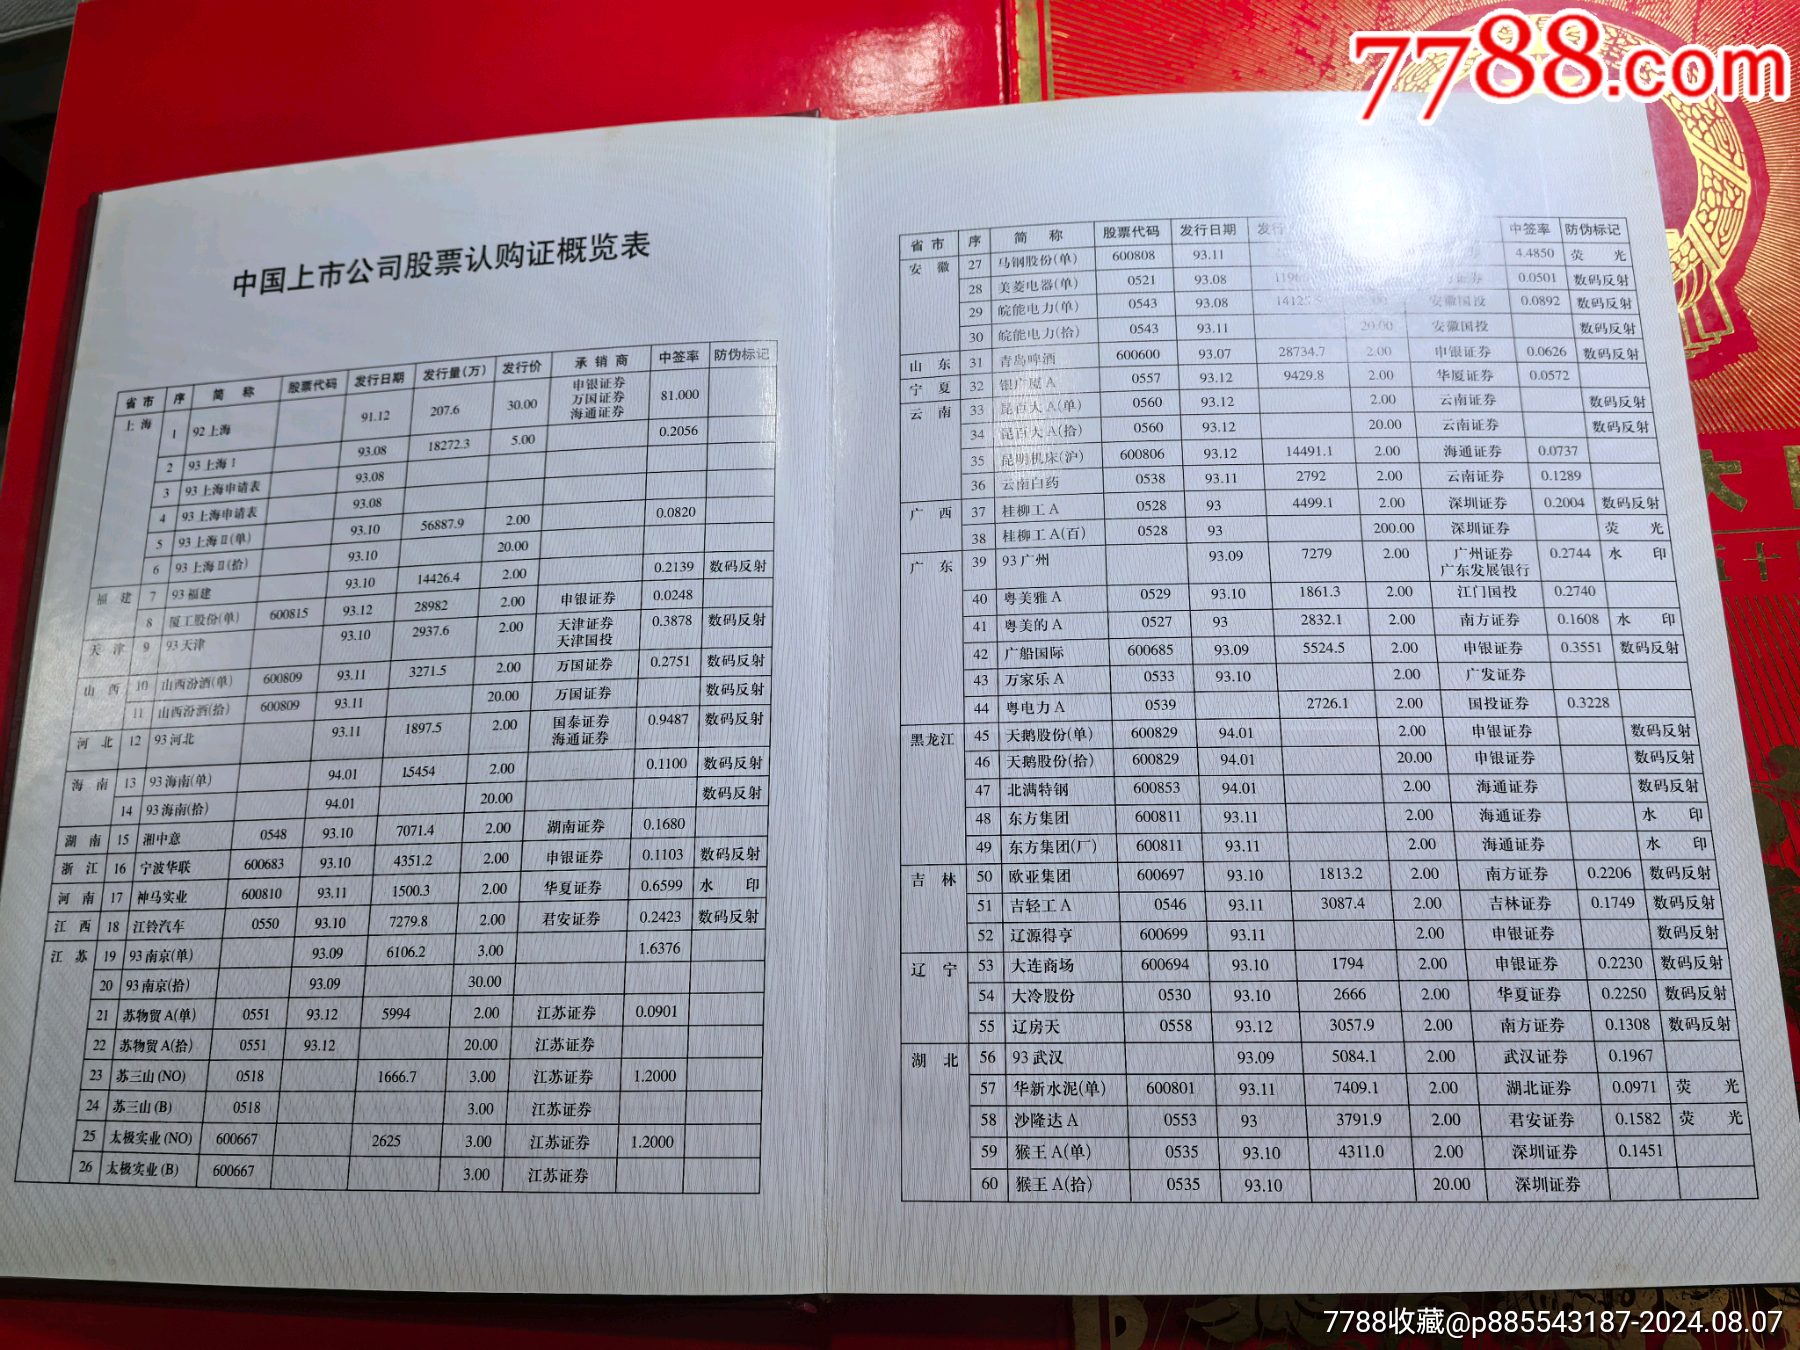 7788.com
中国上市公司股票认购证概览表
省市 序 简称 股票代码 发行日期 发行量(万) 发行价 承销商 中签率 防伪标记
上海 1 92上海 91.12 207.6 30.00 申银证券 万国证券 海通证券 81.000
2 93上海I 93.08 18272.3 5.00 0.2056
3 93上海申请表 93.08
4 93上海申请表 93.08
5 93上海II(单) 93.10 56887.9 2.00 0.0820
6 93上海II(拾) 93.10 20.00
福建 7 93福建 93.10 14426.4 2.00 0.2139 数码反射
8 厦工股份(单) 600815 93.12 28982 2.00 申银证券 0.0248
天津 9 93天津 93.10 2937.6 2.00 天津证券 天津国投 0.3878 数码反射
山西 10 山西汾酒(单) 600809 93.11 3271.5 2.00 万国证券 0.2751 数码反射
11 山西汾酒(拾) 600809 93.11 20.00 万国证券 数码反射
河北 12 93河北 93.11 1897.5 2.00 国泰证券 海通证券 0.9487 数码反射
海南 13 93海南(单) 94.01 15454 2.00 0.1100 数码反射
14 93海南(拾) 94.01 20.00 数码反射
湖南 15 湘中意 0548 93.10 7071.4 2.00 湖南证券 0.1680
浙江 16 宁波华联 600683 93.10 4351.2 2.00 申银证券 0.1103 数码反射
河南 17 神马实业 600810 93.11 1500.3 2.00 华夏证券 0.6599 水印
江西 18 江铃汽车 0550 93.10 7279.8 2.00 君安证券 0.2423 数码反射
江苏 19 93南京(单) 93.09 6106.2 3.00 1.6376
20 93南京(拾) 93.09 30.00
21 苏物贸A(单) 0551 93.12 5994 2.00 江苏证券 0.0901
22 苏物贸A(拾) 0551 93.12 20.00 江苏证券
23 苏三山(NO) 0518 1666.7 3.00 江苏证券 1.2000
24 苏三山(B) 0518 3.00 江苏证券
25 太极实业(NO) 600667 2625 3.00 江苏证券 1.2000
26 太极实业(B) 600667 3.00 江苏证券
省市 序 简称 股票代码 发行日期 发行 中签率 防伪标记
安徽 27 马钢股份(单) 600808 93.11 4.4850 荧光
28 美菱电器(单) 0521 93.08 证券 0.0501 数码反射
29 皖能电力(单) 0543 93.08 安徽国投 0.0892 数码反射
30 皖能电力(拾) 0543 93.11 20.00 安徽国投 数码反射
山东 31 青岛啤酒 600600 93.07 28734.7 2.00 申银证券 0.0626 数码反射
宁夏 32 银广厦A 0557 93.12 9429.8 2.00 华厦证券 0.0572
云南 33 昆百大A(单) 0560 93.12 2.00 云南证券 数码反射
34 昆百大A(拾) 0560 93.12 20.00 云南证券 数码反射
35 昆明机床(沪) 600806 93.12 14491.1 2.00 海通证券 0.0737
36 云南白药 0538 93.11 2792 2.00 云南证券 0.1289
广西 37 桂柳工A 0528 93 4499.1 2.00 深圳证券 0.2004 数码反射
38 桂柳工A(百) 0528 93 200.00 深圳证券 荧光
广东 39 93广州 93.09 7279 2.00 广州证券 广东发展银行 0.2744 水印
40 粤美雅A 0529 93.10 1861.3 2.00 江门国投 0.2740
41 粤美的A 0527 93 2832.1 2.00 南方证券 0.1608 水印
42 广船国际 600685 93.09 5524.5 2.00 申银证券 0.3551 数码反射
43 万家乐A 0533 93.10 2.00 广发证券
44 粤电力A 0539 2726.1 2.00 国投证券 0.3228
黑龙江 45 天鹅股份(单) 600829 94.01 2.00 申银证券 数码反射
46 天鹅股份(拾) 600829 94.01 20.00 申银证券 数码反射
47 北满特钢 600853 94.01 2.00 海通证券 数码反射
48 东方集团 600811 93.11 2.00 海通证券 水印
49 东方集团(厂) 600811 93.11 2.00 海通证券 水印
吉林 50 欧亚集团 600697 93.10 1813.2 2.00 南方证券 0.2206 数码反射
51 吉轻工A 0546 93.11 3087.4 2.00 吉林证券 0.1749 数码反射
52 辽源得亨 600699 93.11 2.00 申银证券 数码反射
辽宁 53 大连商场 600694 93.10 1794 2.00 申银证券 0.2230 数码反射
54 大冷股份 0530 93.10 2666 2.00 华夏证券 0.2250 数码反射
55 辽房天 0558 93.12 3057.9 2.00 南方证券 0.1308 数码反射
湖北 56 93武汉 93.09 5084.1 2.00 武汉证券 0.1967
57 华新水泥(单) 600801 93.11 7409.1 2.00 湖北证券 0.0971 荧光
58 沙隆达A 0553 93 3791.9 2.00 君安证券 0.1582 荧光
59 猴王A(单) 0535 93.10 4311.0 2.00 深圳证券 0.1451
60 猴王A(拾) 0535 93.10 20.00 深圳证券
7788收藏@p885543187-2024.08.07